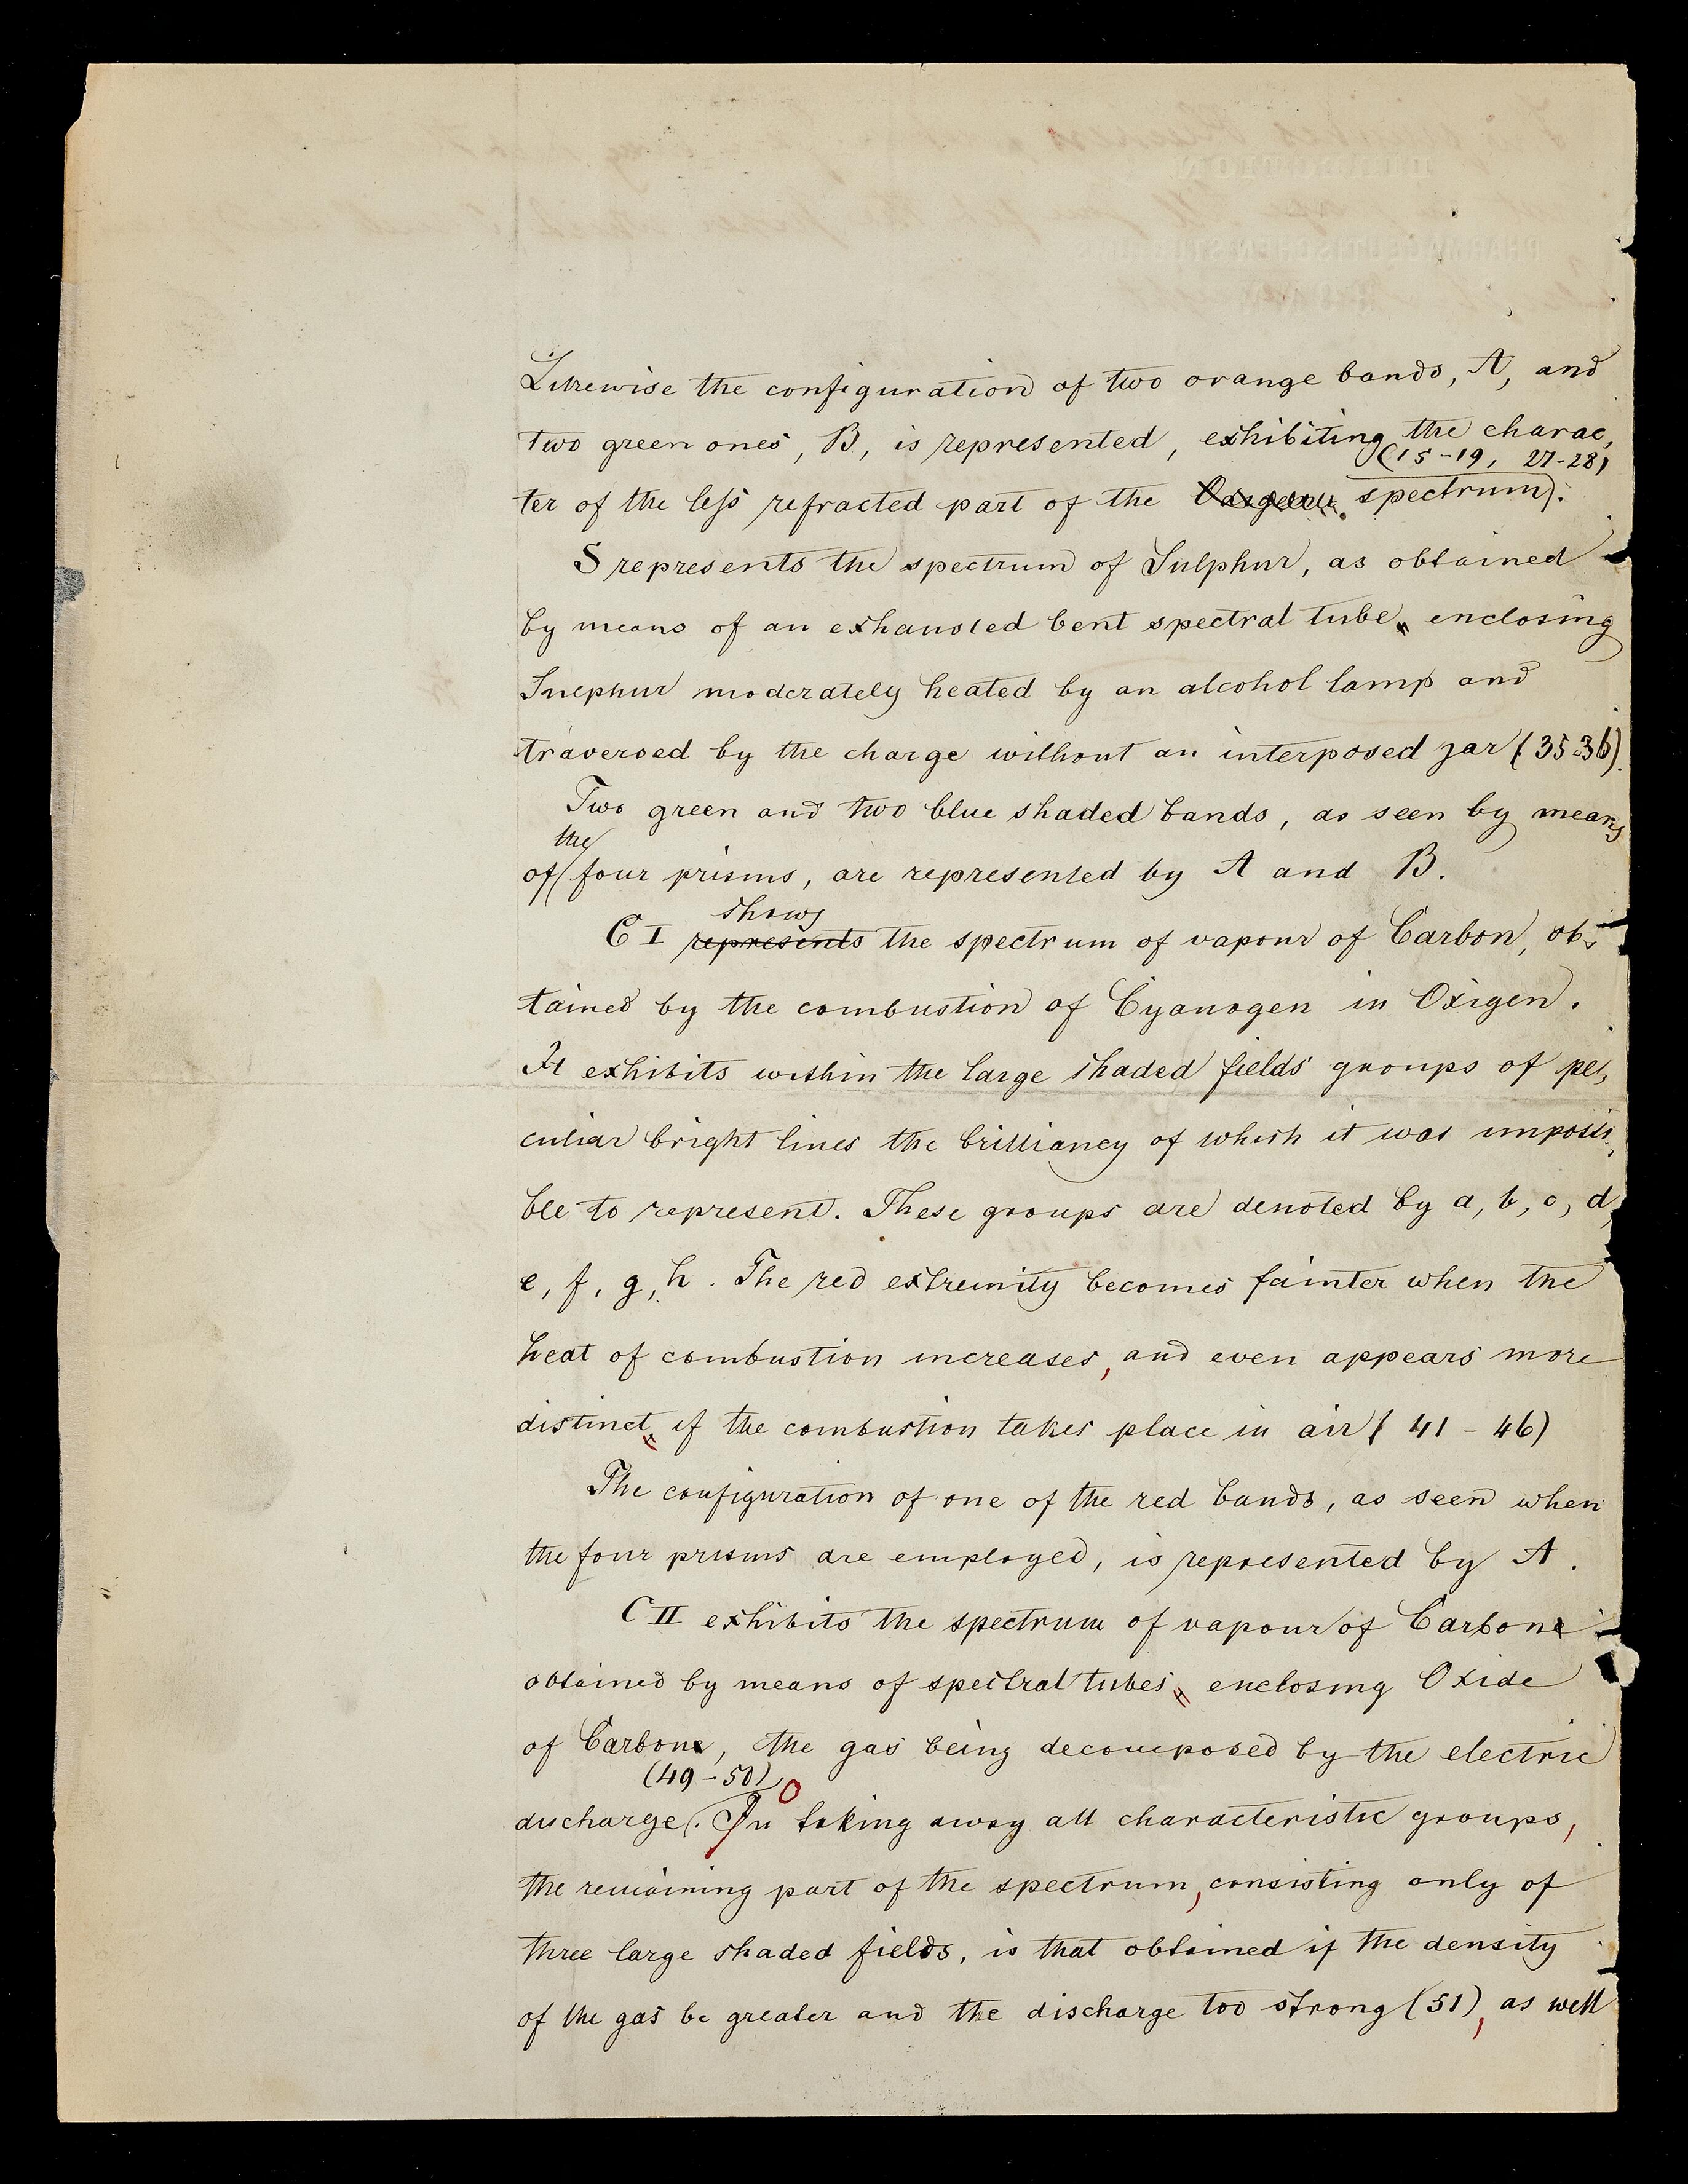 Likewise the configuration of two orange bands, A, and
two green ones, B, is represented, exhibiting the charac,
(15-19, 27-28)
ter of the less refracted part of the spectrum.
S represents the spectrum of Sulphur, as obtained
by means of an exhausted bent spectral tube, enclosing
Sulphur moderately heated by an alcohol lamp and
traversed by the charge without an interposed jar (35-36).
Two green and two blue shaded bands, as seen by means
the
of four prisms, are represented by A and B.
shows
C I represents the spectrum of vapour of Carbon, ob-
tained by the combustion of Cyanogen in Oxigen.
It exhibits within the large shaded fields groups of pe,
culiar bright lines the brilliancy of which it was impossi,
ble to represent. These groups are denoted by a, b, c, d,
e, f, g, h. The red extremity becomes fainter when the
heat of combustion increases, and even appears more
distinct, if the combustion takes place in air (41-46)
The configuration of one of the red bands, as seen when
the four prisms are employed, is represented by A.
C II exhibits the spectrum of vapour of Carbone
obtained by means of spectral tubes, enclosing Oxide
of Carbone, the gas being decomposed by the electric
(49-50)
discharge. In taking away all characteristic groups,
the remaining part of the spectrum, consisting only of
three large shaded fields, is that obtained if the density
of the gas be greater and the discharge too strong (51), as well